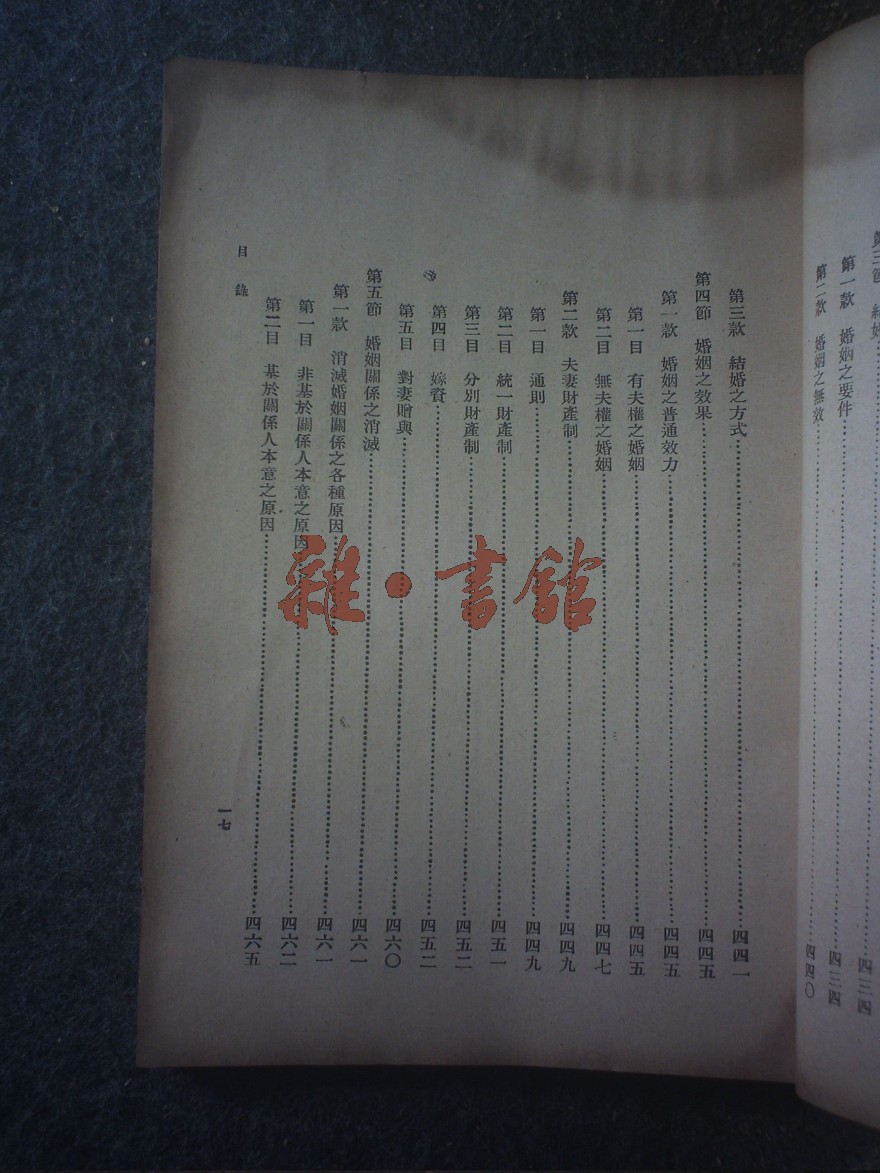 第三節 結婚……四三四
第一款 婚姻之要件……四三四
第二款 婚姻之無效……四四〇
第三款 結婚之方式……四四一
第四節 婚姻之效果……四四五
第一款 婚姻之普通效力……四四五
第一目 有夫權之婚姻……四四五
第二目 無夫權之婚姻……四四七
第二款 夫妻財產制……四四九
第一目 通則……四四九
第二目 統一財產制……四五一
第三目 分別財產制……四五二
第四目 嫁資……四五二
第五目 對妻贈與……四六〇
第五節 婚姻關係之消滅……四六一
第一款 消滅婚姻關係之各種原因……四六一
第一目 非基於關係人本意之原因……四六二
第二目 基於關係人本意之原因……四六五
目錄
一七
雜·書館